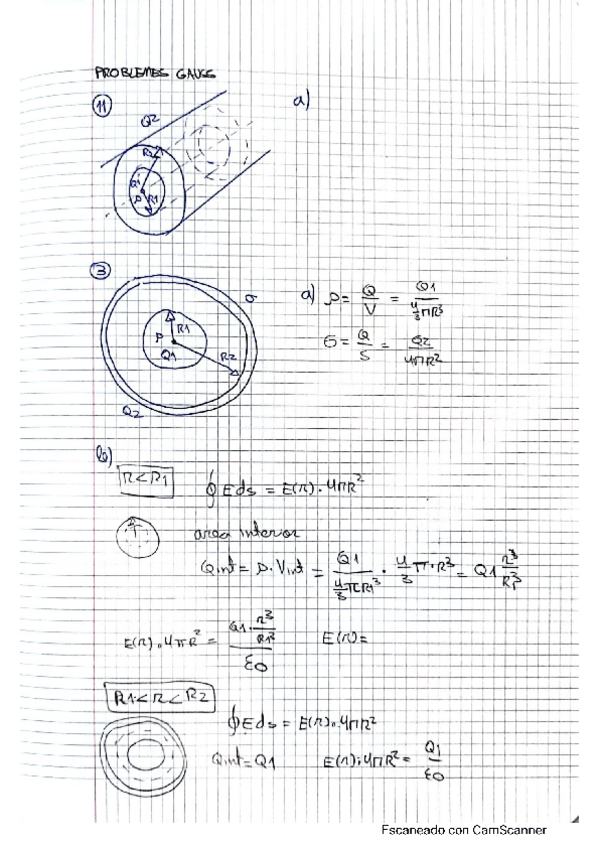 PROBLEMES GAUSS
11
a)
Q2
R2
Q1
ρ R1
3
σ
R1
ρ
Q1
R2
Q2
a) ρ = Q/V = Q1/(4/3 π R³)
σ = Q/S = Q2/(4πR²)
b)
r < R1
∮ E ds = E(r) · 4πR²
area interior
Qint = ρ · Vint = Q1/(4/3 π R1³) · 4/3 π · R³ = Q1 r³/R1³
E(r) · 4πR² = (Q1 · r³/R1³)/ε0
E(r) =
R1 < r < R2
∮ E ds = E(r) · 4πr²
Qint = Q1
E(r) · 4πR² = Q1/ε0
Escaneado con CamScanner